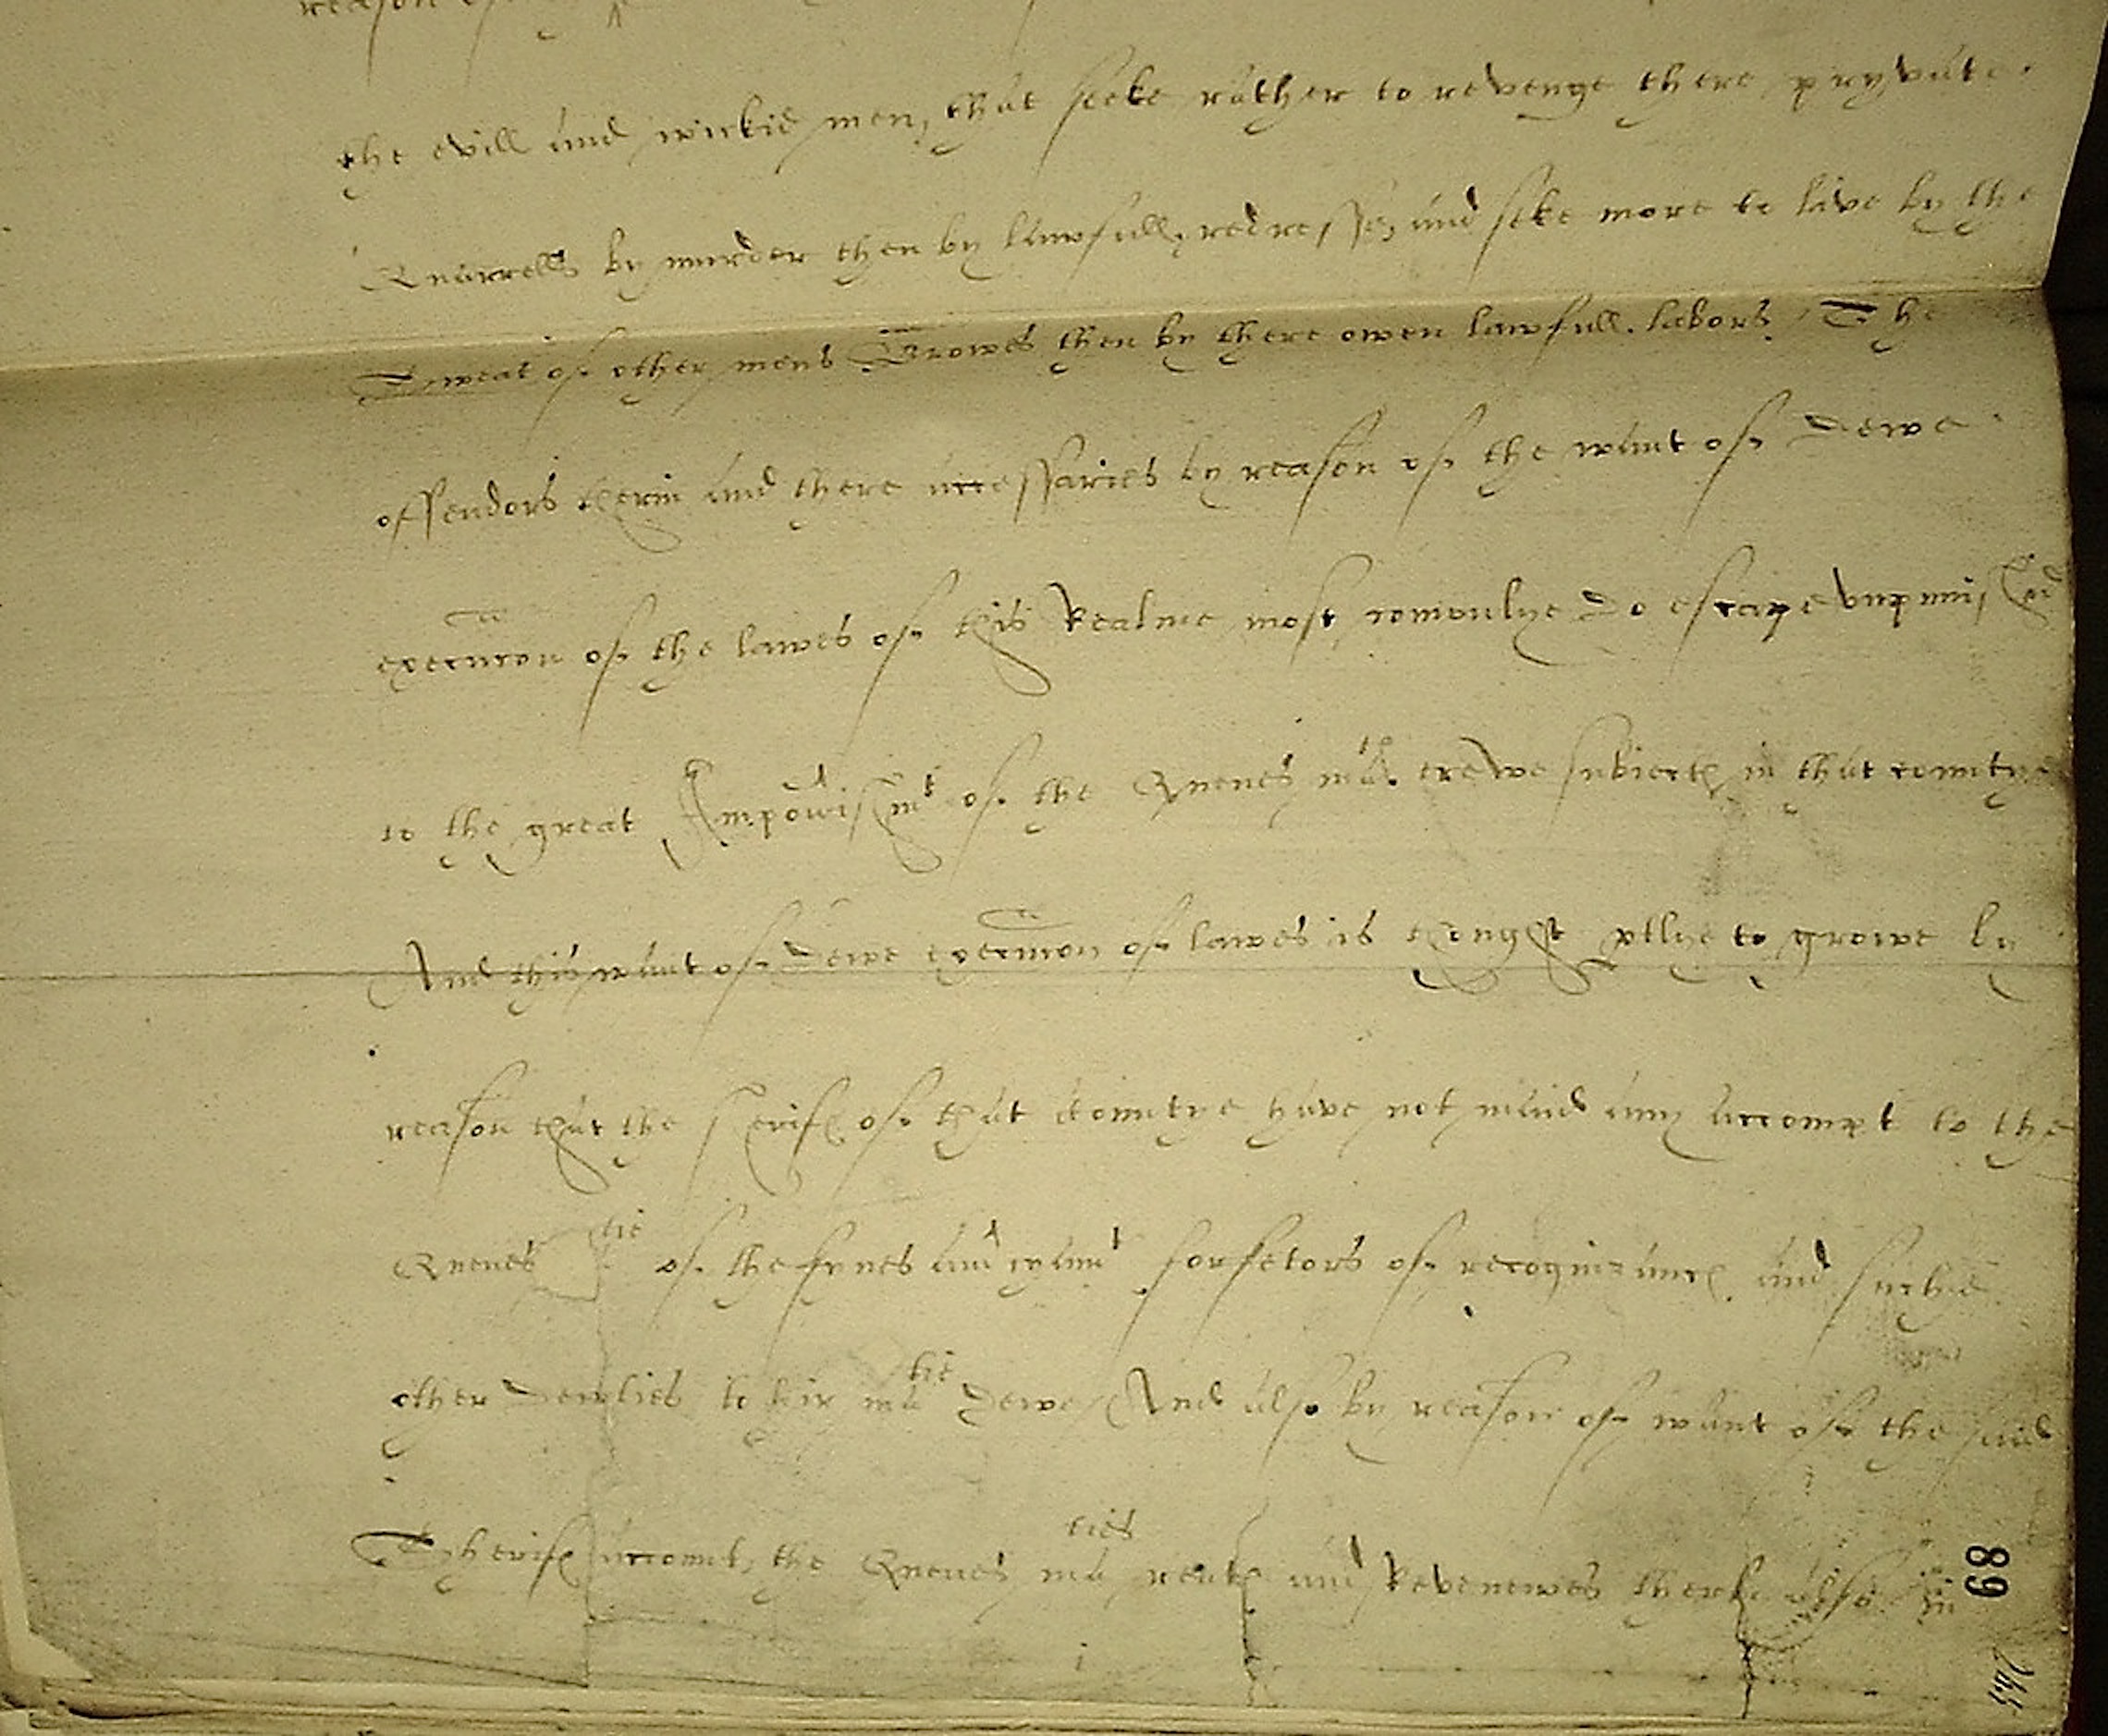 reason of
the evill and wickid men, that seeke rather to revenge there pryvate
Quarrells by murder then by lawfull redresse, and seke more to live by the
Sweat of other mens Browes then by there owen lawfull labors. The
offendors therin and there accessaries by reason of the want of dewe
execucon of the lawes of this Realme most comonlye do escape vnpunished
to the great Impov'ishmt of the Quenes mates trewe subiectes in that countye
And this want of dewe execucon of lawes is thought ptlye to growe by
reason that the sherifes of that countye have not maid any accompt to the
Quenes matie of the fynes and forfetors of recognizances and suche
other dewties to hir matie dewe And also by reason of want of the said
Sherifes accomt, the Quenes maties rentes and Revenewes therfe also in
89